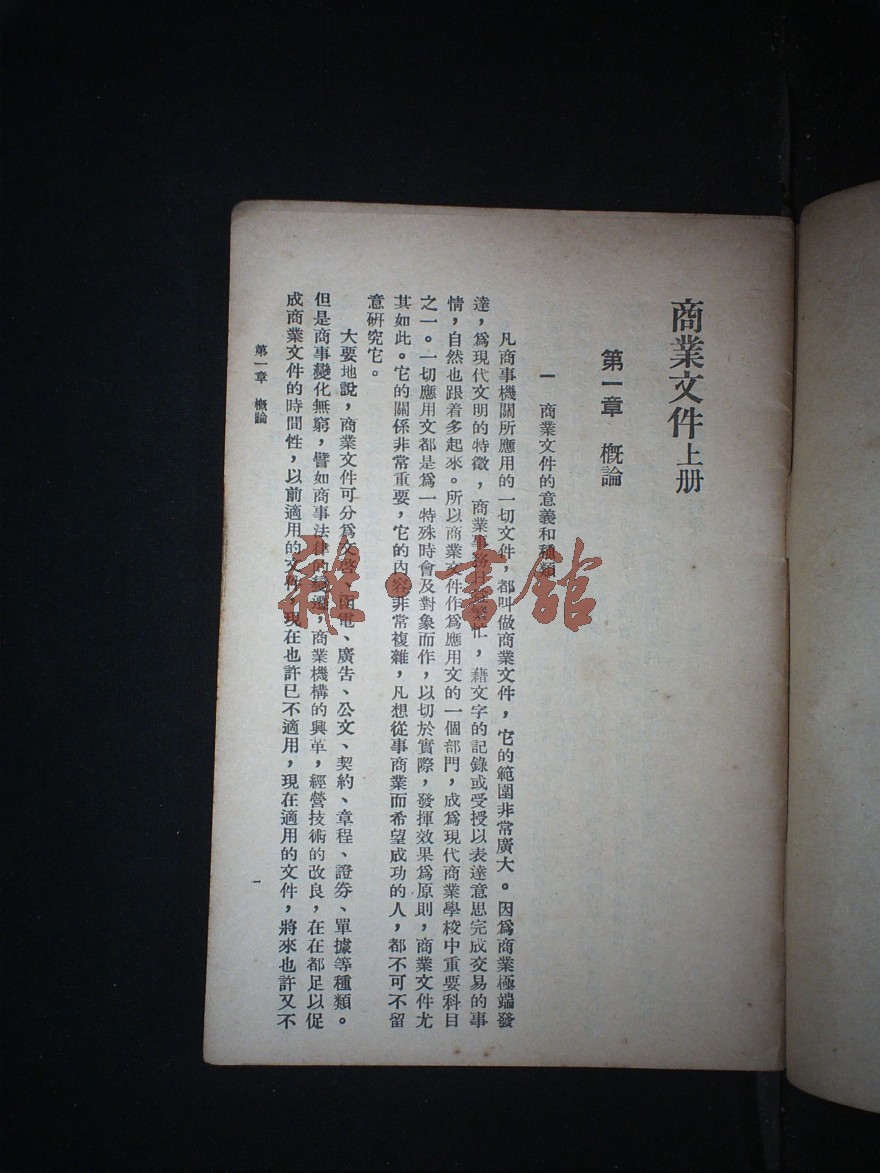 商業文件上册
第一章 概論
一 商業文件的意義和種類
凡商事機關所應用的一切文件，都叫做商業文件，它的範圍非常廣大。因爲商業極端發
達，爲現代文明的特徵，商業事務日，藉文字的記錄或受授以表達意思完成交易的事
情，自然也跟着多起來。所以商業文件作爲應用文的一個部門，成爲現代商業學校中重要科目
之一。一切應用文都是爲一特殊時會及對象而作，以切於實際，發揮效果爲原則，商業文件尤
其如此。它的關係非常重要，它的內容非常複雜，凡想從事商業而希望成功的人，都不可不留
意研究它。
大要地說，商業文件可分爲文啓、函電、廣告、公文、契約、章程、證券、單據等種類。
但是商事變化無窮，譬如商事法律的變遷，商業機構的興革，經營技術的改良，在在都足以促
成商業文件的時間性，以前適用的文件，現在也許已不適用，現在適用的文件，將來也許又不
第一章 概論
一
雜·書館